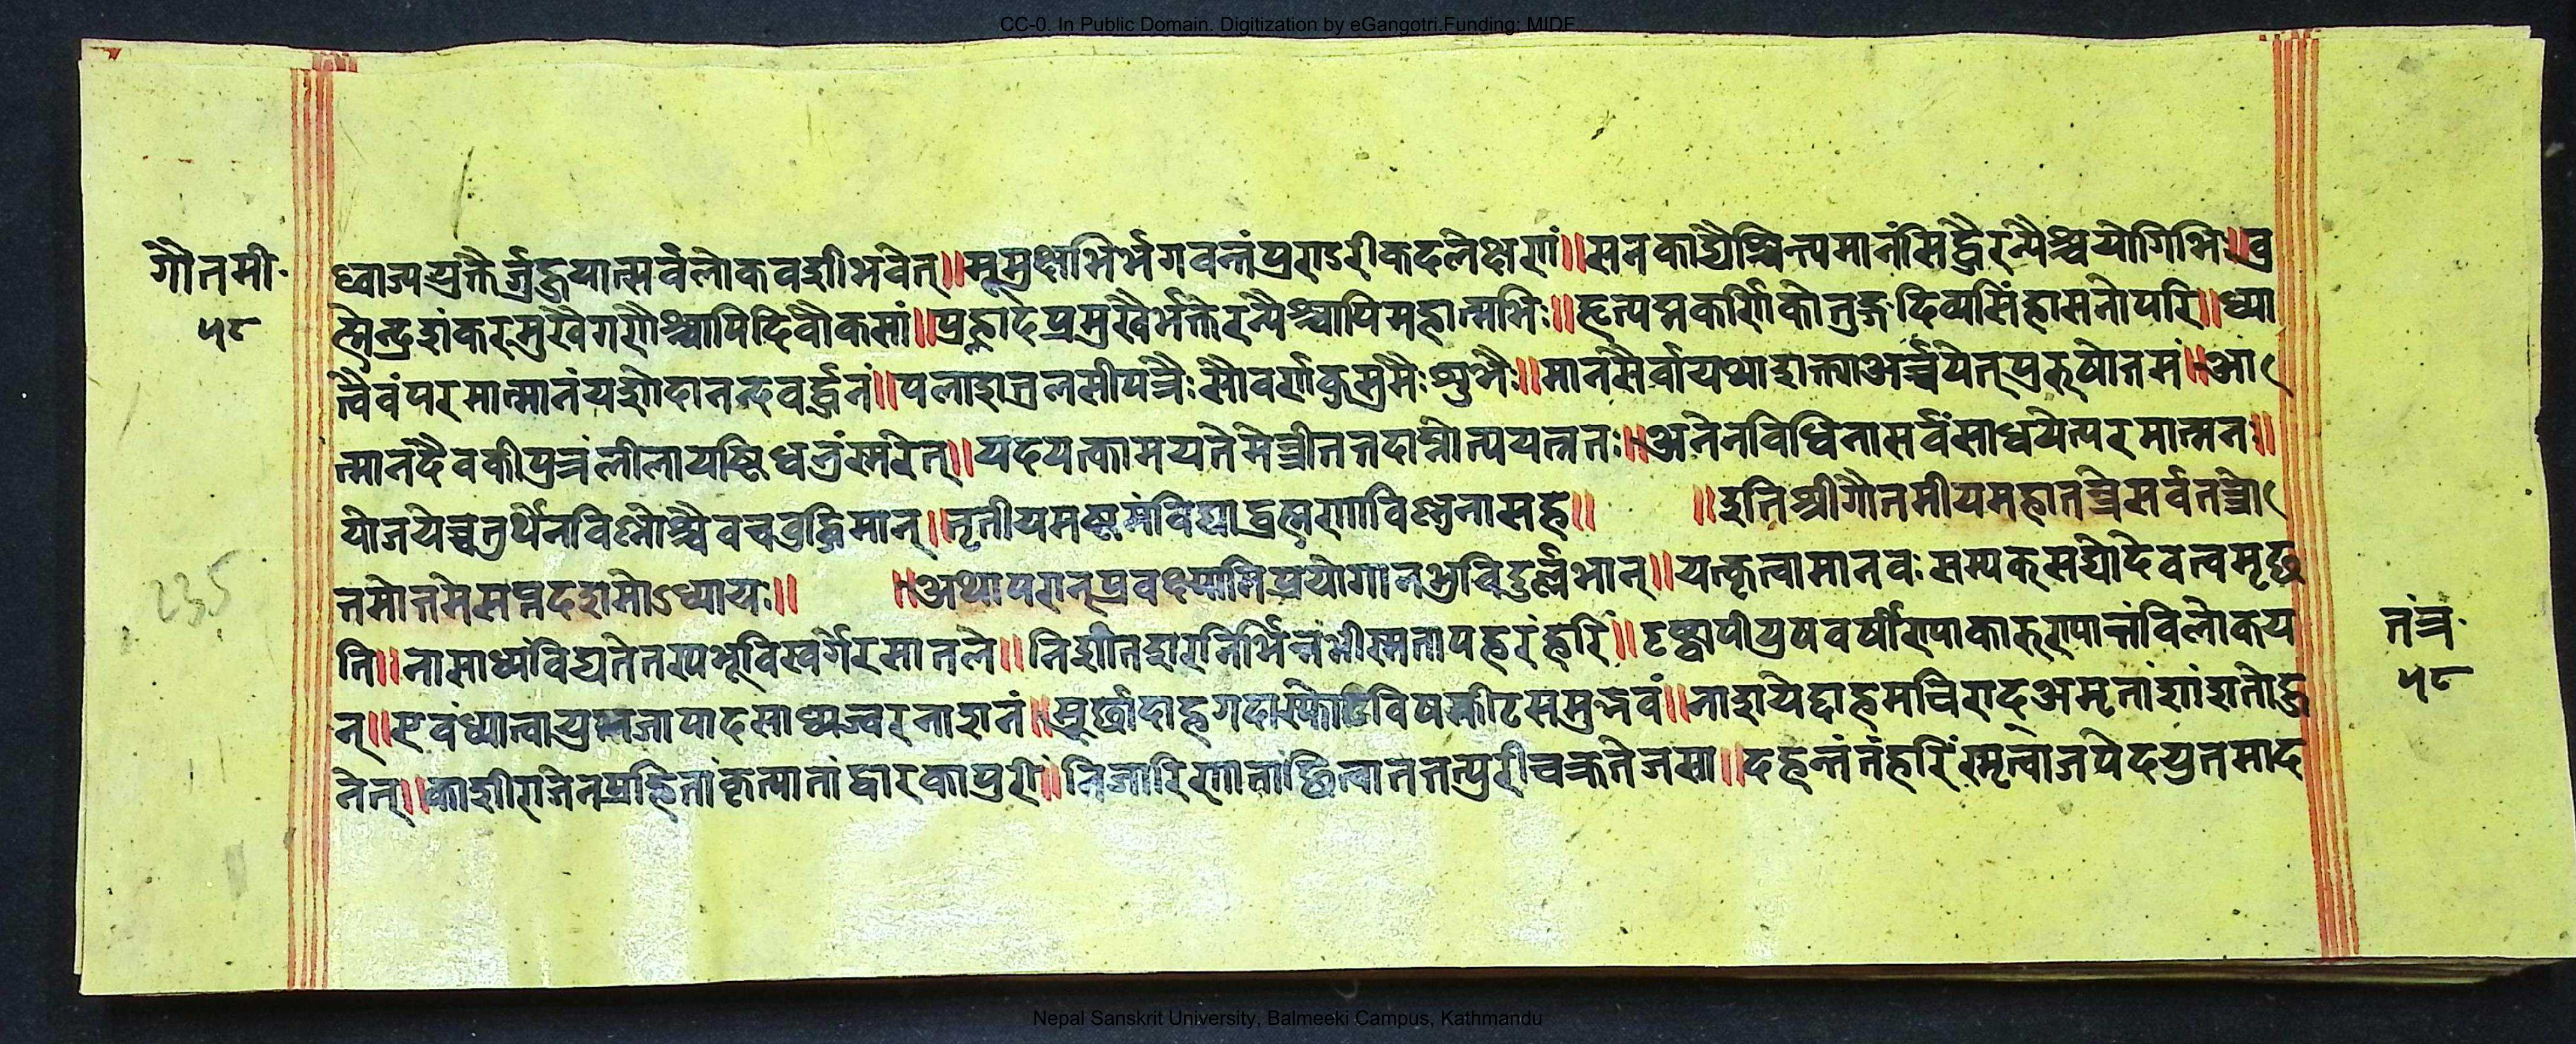 CC-0. In Public Domain. Digitization by eGangotri.Funding: MIDF
गौतमी॰
५८
ध्वाज्यप्लुतैर्जुहुयात्सर्वलोकवशीभवेत्॥मुमुक्षुभिर्भगवन्तंपुण्डरीकदलेक्षणं॥सनकाद्यैश्चिन्त्यमानंसिद्धैरन्यैश्चयोगिभिः॥ब्र
ह्मेन्द्रशंकरमुखैगणैश्चापिदिवौकसां॥प्रह्लादप्रमुखैर्भक्तैरन्यैश्चापिमहात्मभिः॥हृत्पद्मकर्णिकोत्तुङ्गदिव्यसिंहासनोपरि॥ध्या
त्वैवंपरमात्मानंयशोदानन्दवर्द्धनं॥पलाशतुलसीपत्रैःसौवर्णकुसुमैःशुभैः॥मानसैर्वायथाशक्त्याअर्च्चयेत्पुरुषोत्तमं॥आ
त्मानंदेवकीपुत्रंलीलायष्टिधरंस्मरेत्॥यदयत्कामयतेमन्त्रीतत्तदाप्नोत्ययत्नतः॥अनेनविधिनासर्वंसाधयेत्परमात्मनः॥
योजयेच्चतुर्थेनविश्नोश्चैवचबुद्धिमान्॥तृतीयमष्टमंविद्याद्ब्रह्मणाविश्नुनासह॥ ॥इतिश्रीगौतमीयमहातन्त्रेसर्वतन्त्रो
त्तमोत्तमेसप्तदशमोऽध्यायः॥ ॥अथापरान्प्रवक्ष्यामिप्रयोगानभुविदुर्ल्लभान्॥यत्कृत्वामानवःसम्यक्सद्योदेवत्वमृछ
ति॥नासाध्यंविद्यतेतस्यभूविस्वर्गेरसातले॥निशीतशरनिर्भिन्नंभीस्मतापहरंहरिं॥दृष्ट्वापीयुषवर्षीण्याकारुण्यात्तंविलोकय
न्॥एवंध्यात्वायुतजापादसाध्यज्वरनाशनं॥मूर्छादाहगदास्फोटविषकीटसमुद्भवं॥नाशयेद्दाहमचिराद्अमृतांशांशतोहु
नेत्॥काशीराजेनप्रहितांकृत्यातांद्वारकापुरीं॥निजारिणातांछित्वाततत्पुरीचक्रतेजसा॥दहन्तंतंहरिंस्मृत्वाजपेदयुतमाद
तंत्र॰
५८
235
Nepal Sanskrit University, Balmeeki Campus, Kathmandu